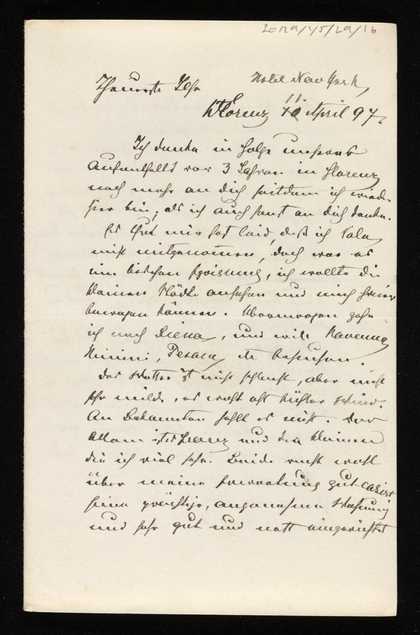 Hotel New York,
Theuerste
Florenz 11 April 97.
Ich denke in Folge unseres
Aufenthalts vor 3 Jahren in Florenz
noch mehr an dich seitdem ich wieder
hier bin, als ich auch sonst an dich denke.
Es thut mir fast leid, daß ich
nicht mitgenommen, doch war es
ein bischen, ich wollte die
kleinen Städte ansehen und mich
bewegen können. Uebermorgen gehe
ich nach Siena, und will Ravenna,
Rimini, Pesaro, etc besuchen.
Das Wetter ist nicht schlecht, aber nicht
sehr milde, es weht oft kühler Wind.
An Bekannten fehlt es nicht. Vor
Allem ist und die kleinen
die ich viel sehe. Beide recht wohl
über meine Erwartung gut
eine prächtige, angenehme Wohnung
und sehr gut und nett eingerichtet